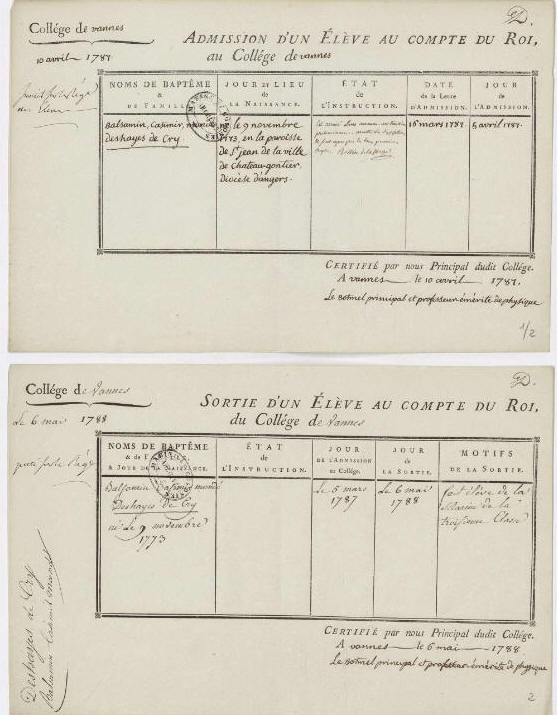 D.
Collége de vannes
10 avril 1787
ADMISSION D'UN ÉLÈVE AU COMPTE DU ROI,
au Collége de vannes
NOMS DE BAPTÊME
&
DE FAMILLE.
JOUR ET LIEU
de
LA NAISSANCE.
ÉTAT
de
L'INSTRUCTION.
DATE
de la Lettre
D'ADMISSION.
JOUR
de
L'ADMISSION.
Balsamin, Casimir, mondé
deshayes de Cry
né le 9 novembre
1773, en la paroisse
de St jean de la ville
de Chateau-gontier,
Diocèse d'angers.
16 mars 1787
5 avril 1787.
CERTIFIÉ par nous Principal dudit Collége.
A vannes le 10 avril 1787.
Le Botmel principal et professeur émérite de physique
1/2
D.
Collége de Vannes
Le 6 mai 1788
SORTIE D'UN ÉLÈVE AU COMPTE DU ROI,
du Collége de Vannes
NOMS DE BAPTÊME
& de FAMILLE
& JOUR DE LA NAISSANCE.
ÉTAT
de
L'INSTRUCTION.
JOUR
DE L'ADMISSION
au Collége.
JOUR
de
LA SORTIE.
MOTIFS
DE LA SORTIE.
Balsamin Casimir mondé
Deshayes de Cry
né Le 9 novembre
1773
Le 5 mars
1787
Le 6 mai
1788
fait élève de la
Marine de la
troisieme Classe
Deshayes de Cry
Balsamin Casimir mondé
CERTIFIÉ par nous Principal dudit Collége.
A vannes le 6 mai 1788
Le Botmel principal et professeur émérite de physique
2